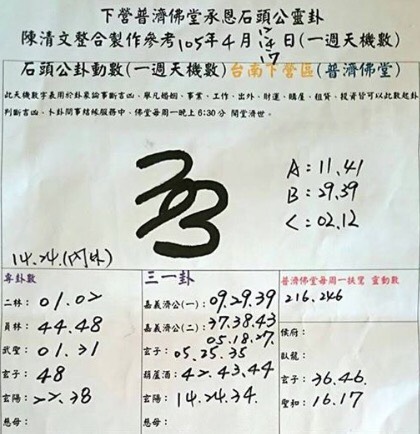 下營普濟佛堂承恩石頭公靈卦
陳清文整合製作參考105年4月14日(一週天機數)
17
石頭公卦動數(一週天機數)台南下營區(普濟佛堂)
此天機數字表用於卦象論事斷吉凶、舉凡婚姻、事業、工作、出外、財運、購屋、租賃、投資皆可以此數起卦
判斷吉凶、卜卦問事結緣服務中、佛堂每周一晚上6:30分 開堂濟世。
A:11.41
B:29.39
C:02.12
14.24.(內外)
專卦數
二林:01.02
員林:44.48
武聖:01.31
玄子:48
玄陽:22.38
慈母:
三一卦
嘉義濟公(一):09.29.39
嘉義濟公(二):37.38.43
05.18.27.
玄子:05.25.35
葫蘆酒:42.43.44
玄陽:14.24.34.
慈母:
普濟佛堂每周一扶鸞 靈動數
216.246
侯府:
臥龍:
玄子:36.46.
聖和:16.17